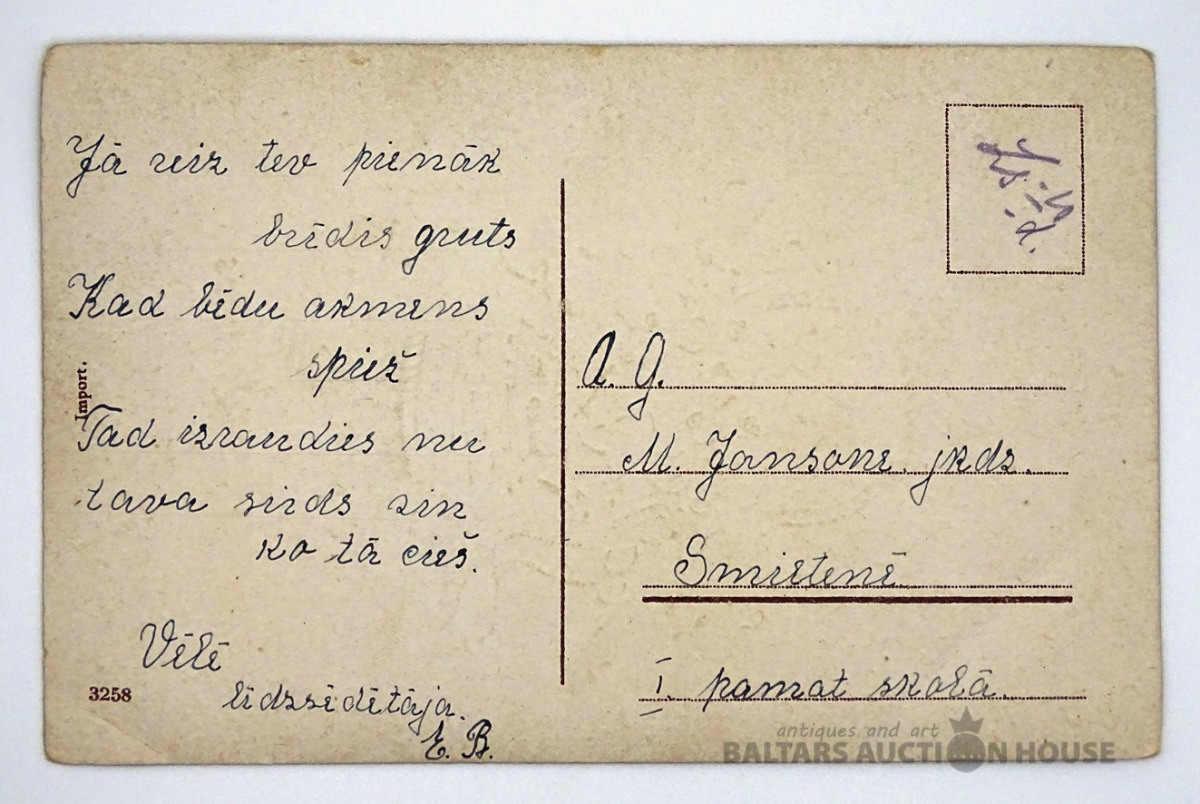 Jā reiz tev pienāk
brīdis gruts
Kad bēdu akmens
spiež
Tad izraudies nu
tava sirds zin
ko tā cieš.
Vēlē
līdzsēdētāja.
E. B.
Import.
3258
A. G.
M. Jansone jkdz.
Smiltenē
I. pamat skolā.
antiques and art
BALTARS AUCTION HOUSE